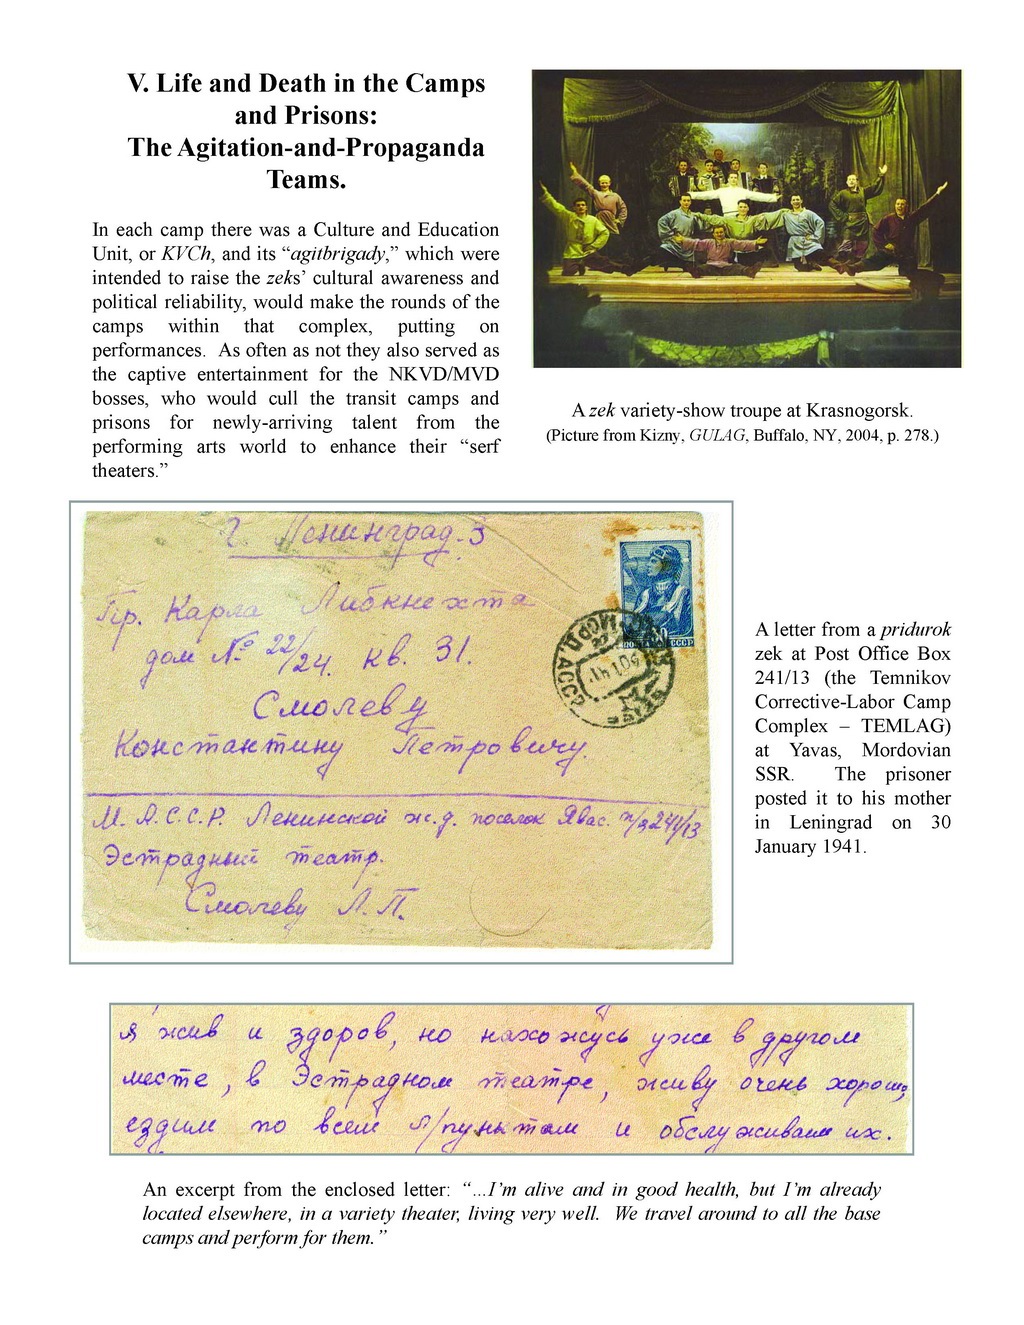 V. Life and Death in the Camps
and Prisons:
The Agitation-and-Propaganda
Teams.
In each camp there was a Culture and Education
Unit, or KVCh, and its “agitbrigady,” which were
intended to raise the zeks’ cultural awareness and
political reliability, would make the rounds of the
camps within that complex, putting on
performances. As often as not they also served as
the captive entertainment for the NKVD/MVD
bosses, who would cull the transit camps and
prisons for newly-arriving talent from the
performing arts world to enhance their “serf
theaters.”
A zek variety-show troupe at Krasnogorsk.
(Picture from Kizny, GULAG, Buffalo, NY, 2004, p. 278.)
г. Ленинград-3
Пр. Карла Либкнехта
дом № 22/24. кв. 31.
Смолеву
Константину Петровичу.
М.А.С.С.Р. Ленинской ж.д. поселок Явас. п/я 241/13
Эстрадный театр.
Смолеву Л.П.
ПОЧТА СССР
A letter from a pridurok
zek at Post Office Box
241/13 (the Temnikov
Corrective-Labor Camp
Complex – TEMLAG)
at Yavas, Mordovian
SSR. The prisoner
posted it to his mother
in Leningrad on 30
January 1941.
я жив и здоров, но нахожусь уже в другом
месте, в Эстрадном театре, живу очень хорошо,
ездим по всем л/пунктам и обслуживаем их.
An excerpt from the enclosed letter: “...I’m alive and in good health, but I’m already
located elsewhere, in a variety theater, living very well. We travel around to all the base
camps and perform for them.”